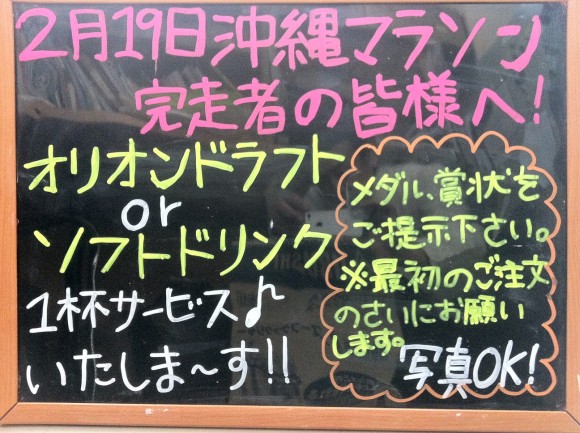 2月19日沖縄マラソン
完走者の皆様へ!
オリオンドラフト
or
ソフトドリンク
1杯サービス♪
いたしま〜す!!
メダル、賞状を
ご提示下さい。
※最初のご注文
のさいにお願い
します。
写真OK!